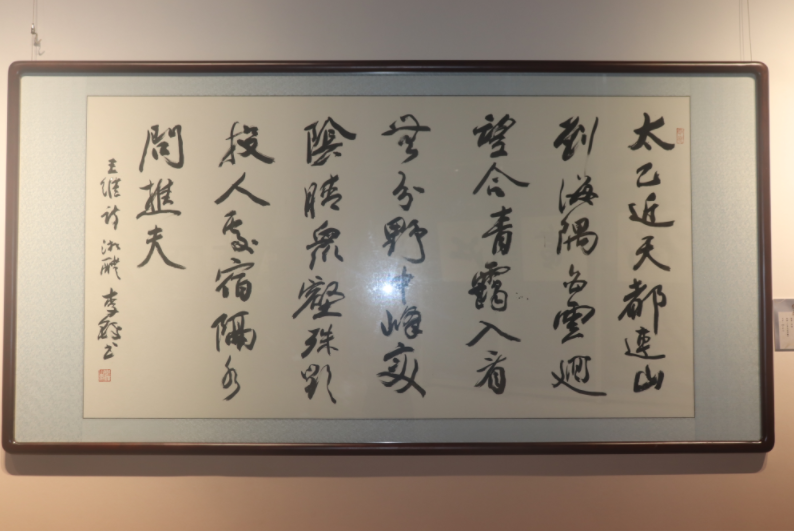 太乙近天都連山
到海隅白雲迴
望合青靄入看
無分野中峰變
陰晴衆壑殊欲
投人處宿隔水
問樵夫
王維詩 湘醴 李 書